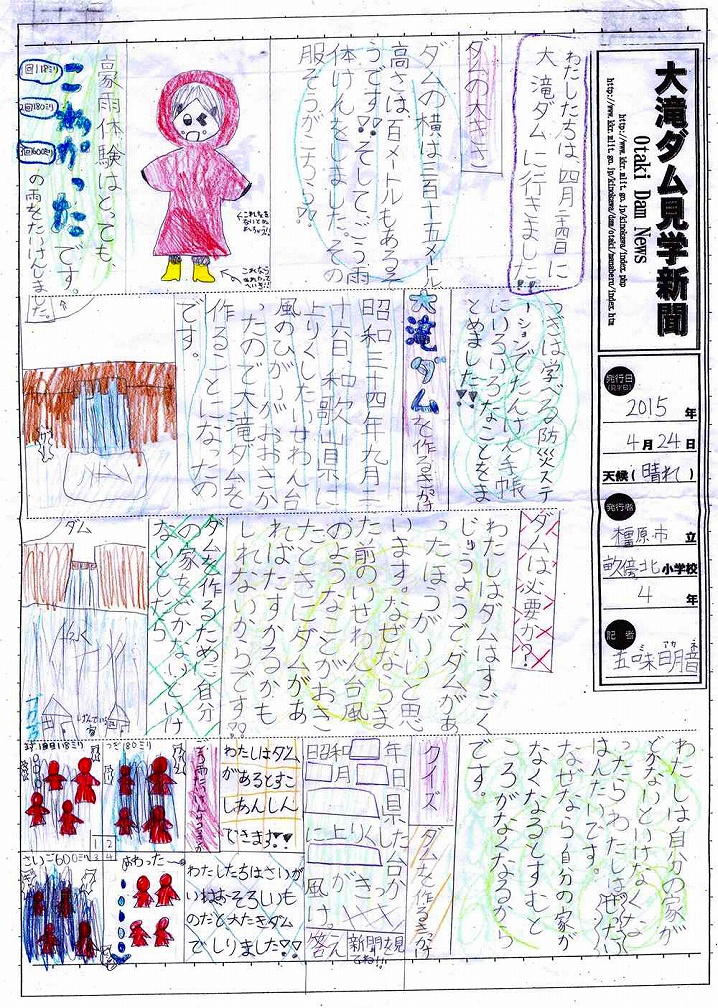 大滝ダム見学新聞
Otaki Dam News
http://www.kkr.mlit.go.jp/kinokawa/index.php
発行日
2015年
4月24日
天候(晴れ)
発行者
橿原市立
畝傍北小学校
4年
記者
わたしたちは、四月二十四日に
大滝ダムに行きました
ダムの大きさ
ダムの横は三百十五メートル
高さは百メートルもあるそ
うです!!そして、ごう雨
体けんをしました。その
服そうがこちら!!
これなら
ぬれたって
へいき!!
豪雨体験はとっても、
こわかったです。
1回118ミリ
2回180ミリ
3回600ミリ
の雨をたいけんしました。
つぎは学べる防災ステ
ーションでたんけん手帳
にいろいろなことをま
とめました!!
大滝ダムを作るきっかけ
昭和三十四年九月二
十六日和歌山県に
上りくしたいせわん台
風のひがいがおおきか
ったので大滝ダムを
作ることになったの
です。
ダムは必要か?
わたしはダムはすごく
じゅうようでダムがあ
ったほうがいいと思
います。なぜならま
た前のいせわん台風
のようなことがおき
たときにダムがあ
ればたすかるかも
しれないからです!!
ダムを作るために自分
の家をどかないといけ
ないとしたら
ダム
わたしは自分の家が
どかないといけなくな
ったらわたしはぜったい
はんたいです。
なぜなら自分の家が
なくなるとすむと
ころがなくなるから
です。
クイズ
ダムを作るきっかけ
昭和 年
月 日
県
に上りくした台
風 がきっか
け。
答え
新聞を見
てね!!
わたしはダム
があるとすご
くあんしん
できます!!
ごう雨たいけんのようす
まず1回目118ミリ
つぎ180ミリ
1 2
3 4
さいご600ミリ
おわった〜
わたしたちはさいが
いはおそろしいも
のだと大たきダム
でしりました!!